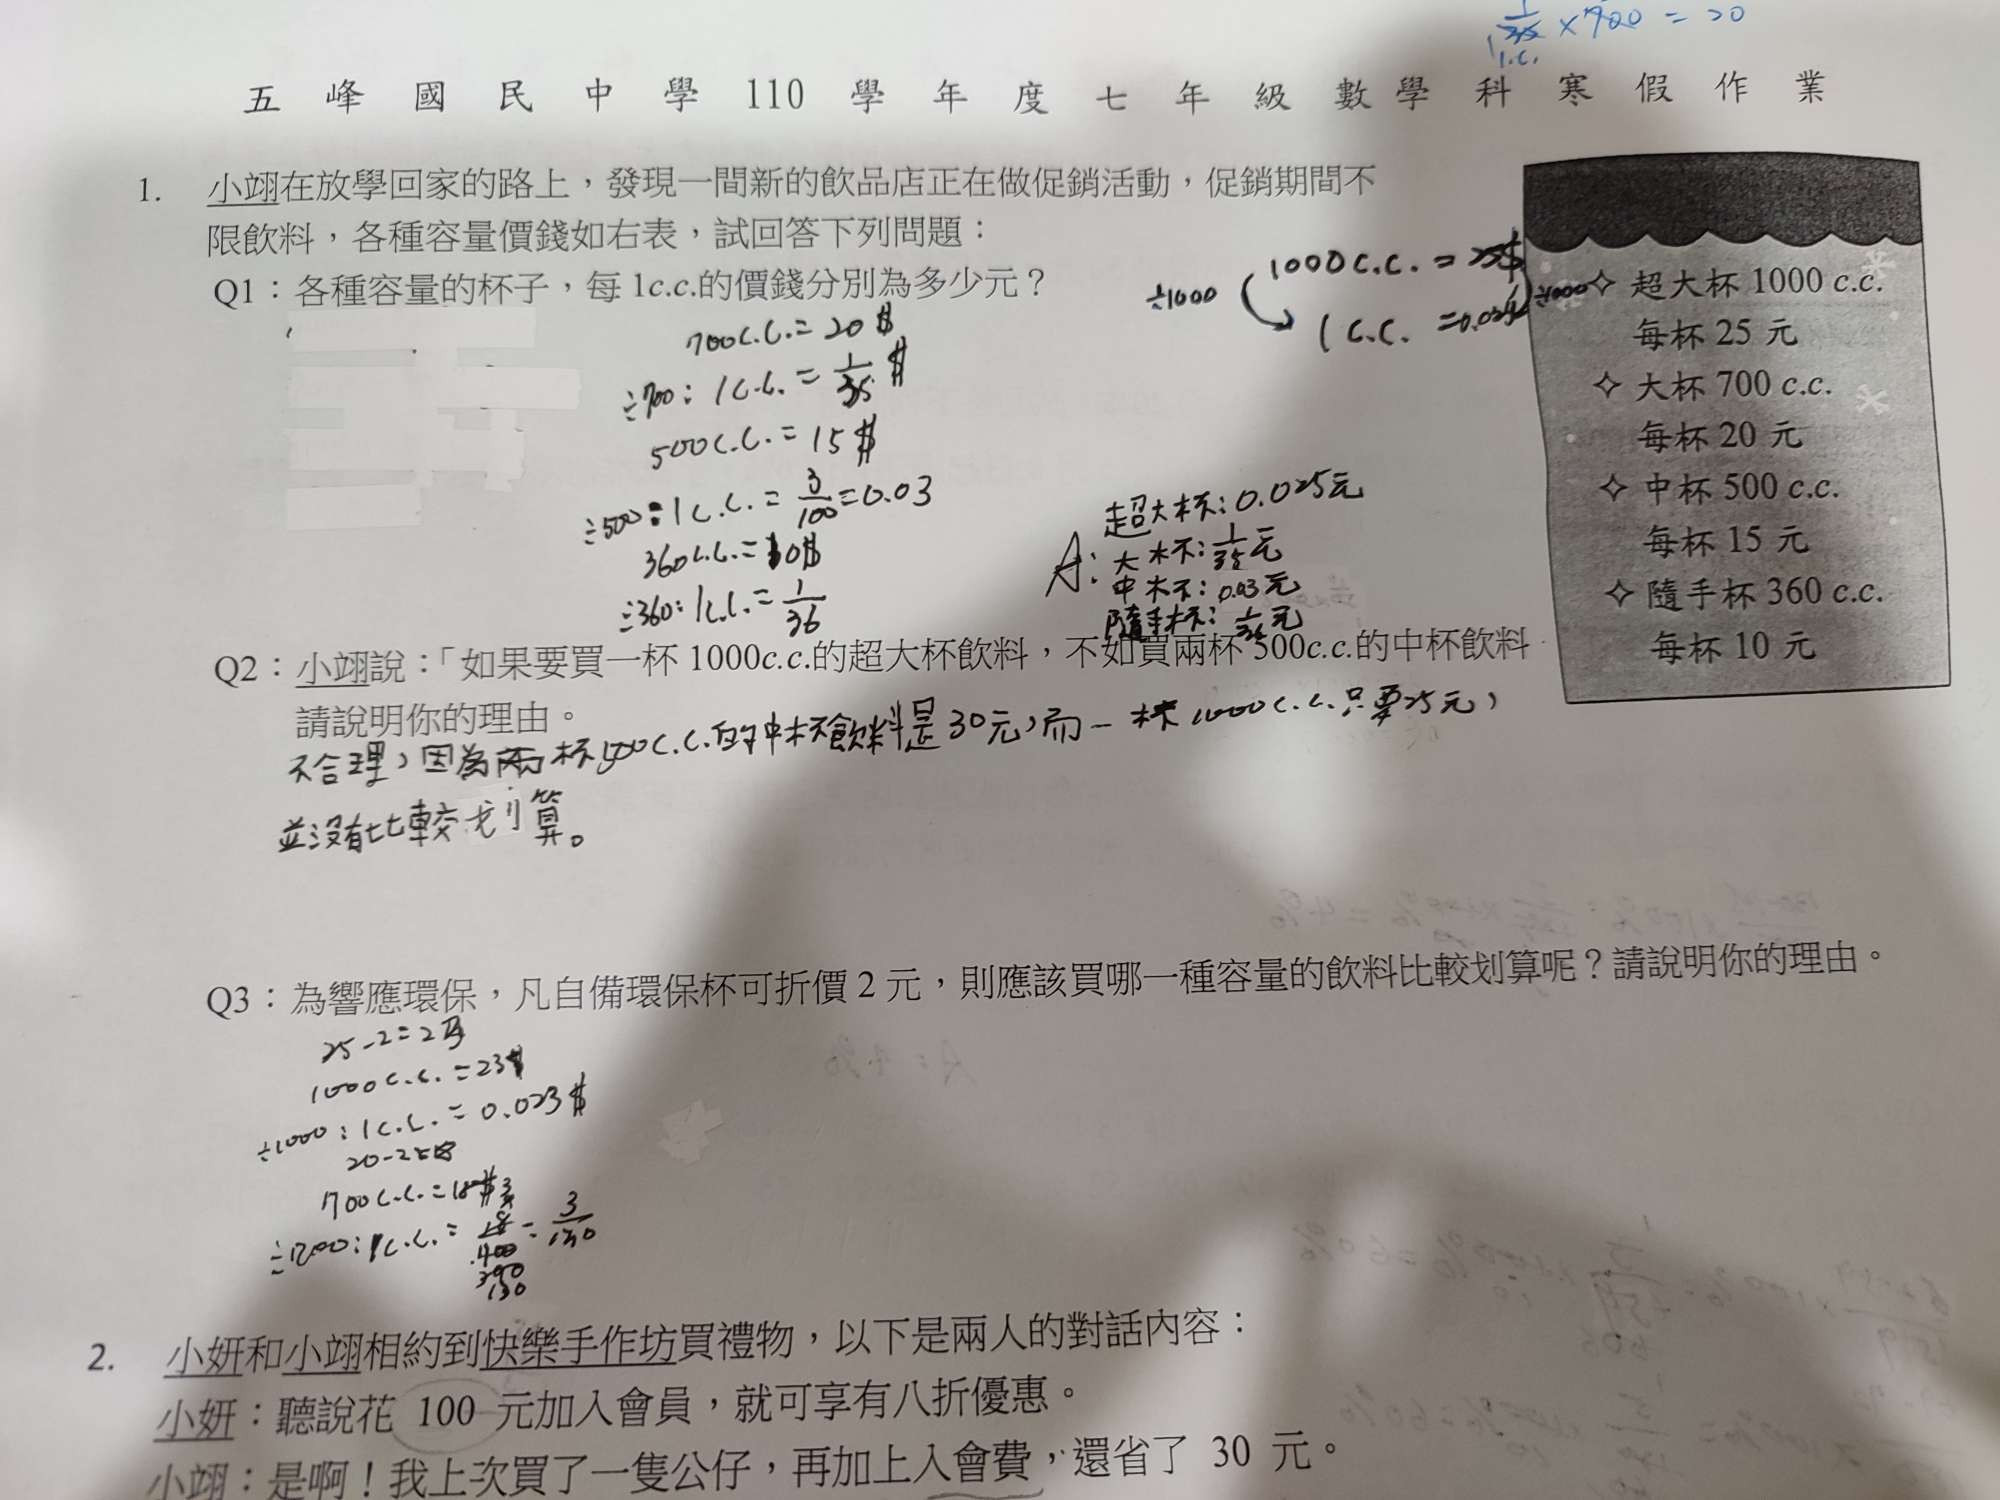 1/35 × 700 = 20
1 c.c.
五峰國民中學 110 學年度七年級數學科寒假作業
1. 小翊在放學回家的路上，發現一間新的飲品店正在做促銷活動，促銷期間不
限飲料，各種容量價錢如右表，試回答下列問題：
Q1：各種容量的杯子，每 1c.c.的價錢分別為多少元？
÷1000
1000 c.c. = 25$
1 c.c. = 0.025$
÷1000
700c.c. = 20$
÷700: 1c.c. = 1/35 $
500c.c. = 15$
÷500: 1c.c. = 3/100 = 0.03
360c.c. = 10$
÷360: 1c.c. = 1/36
A: 超大杯: 0.025元
大杯: 1/35元
中杯: 0.03元
隨手杯: 1/36元
超大杯 1000 c.c.
每杯 25 元
大杯 700 c.c.
每杯 20 元
中杯 500 c.c.
每杯 15 元
隨手杯 360 c.c.
每杯 10 元
Q2：小翊說：「如果要買一杯 1000c.c.的超大杯飲料，不如買兩杯 500c.c.的中杯飲料
請說明你的理由。
不合理，因為兩杯500c.c.的中杯飲料是30元，而一杯1000c.c.只要25元，
並沒有比較划算。
Q3：為響應環保，凡自備環保杯可折價 2 元，則應該買哪一種容量的飲料比較划算呢？請說明你的理由。
25-2=23
1000c.c.=23$
÷1000: 1c.c.=0.023$
20-2=18
700c.c.=18$
1c.c.=
3/150
2. 小妍和小翊相約到快樂手作坊買禮物，以下是兩人的對話內容：
小妍：聽說花 100 元加入會員，就可享有八折優惠。
小翊：是啊！我上次買了一隻公仔，再加上入會費，還省了 30 元。